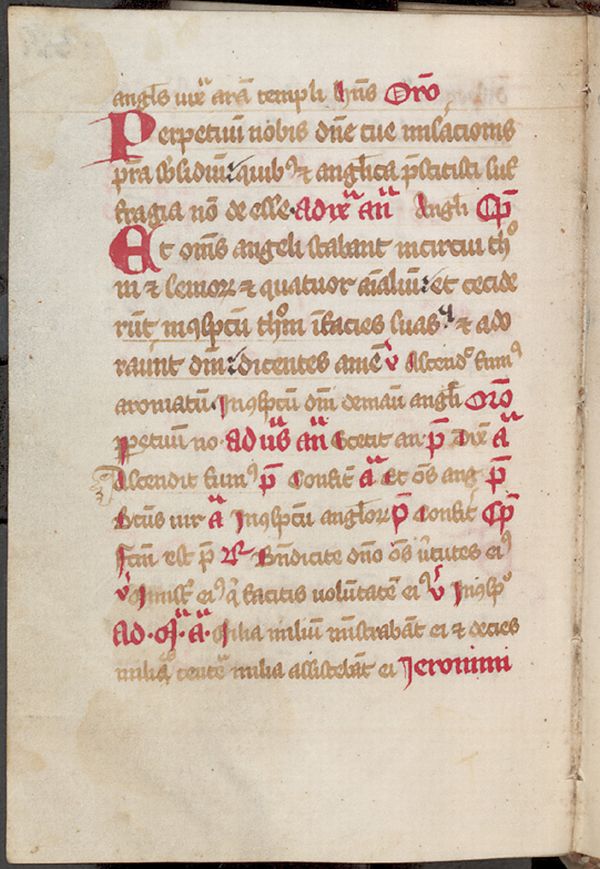 angl's iux̄ arā templi hn̄s Orō
Perpetuū nobis dn̄e tue mis̄acionis
pr̄a sb'sidiū quib⁹ & anglica p̄stitisti suf
fragia nō de esse. ad ix̄ an̄ Angl'i Cp̄
Et om̄s angeli stabant in circuitu th°
ni & senior̄ & quatuor aīaliū et cecide
rūt in 9sp̄ctu thōni ī facies suas & ado
raūnt dm̄ dicentes amē v̄ Ascend° fum⁹
aromatū. In 9sp̄ctu dn̄i de manu angl'i Orō
ppetuū no. ad us̄ an̄ Stetit an. p̄ Dix̄ ā
Ascendit fum⁹ p̄ Confit' ā Et om̄s ang p̄
ā In 9sp̄ctu anglor̄ p̄ Confit' Cp̄
fc̄m est p̄ R̄ Bn̄dicite dn̄o om̄s v̄tutes ei⁹
v̄ ministˀ ei⁹ q̄ facitis volūtatē ei⁹ v̄ In 9sp°
Ad. m̄. ā. Milia miliū mīstrabāt ei & decies
milies centē milia assistebāt ei Jeronimi